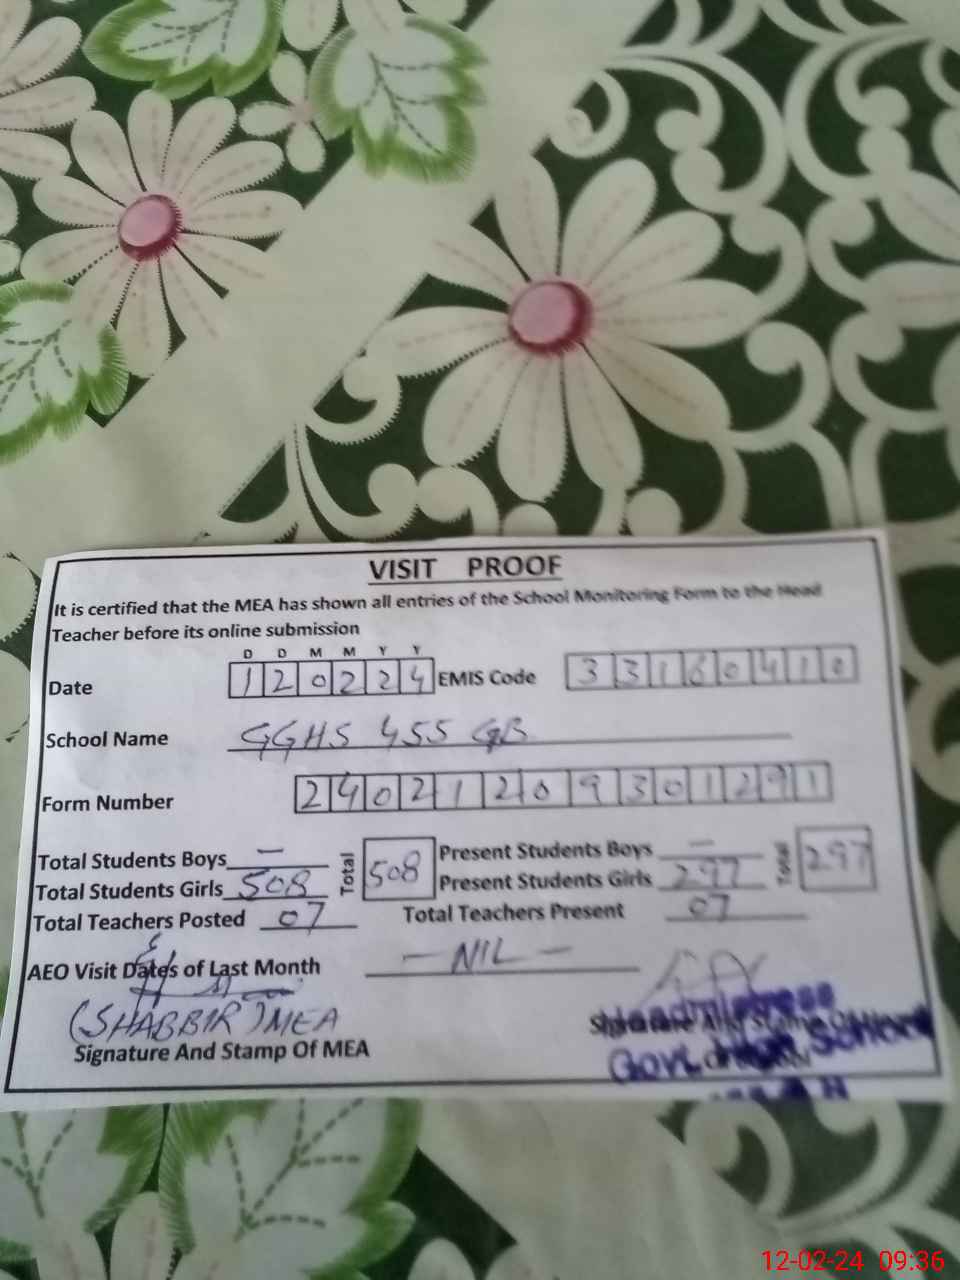 VISIT PROOF
It is certified that the MEA has shown all entries of the School Monitoring Form to the Head
Teacher before its online submission
D D M M Y Y
Date 120224 EMIS Code 33160410
School Name GGHS 455 GB
Form Number 24021209301291
Total Students Boys — Total 508 Present Students Boys — Total 297
Total Students Girls 508 Present Students Girls 297
Total Teachers Posted 07 Total Teachers Present 07
AEO Visit Dates of Last Month — NIL —
(SHABBIR) MEA
Signature And Stamp Of MEA
Headmistress
Signature And Stamp Of
Govt. High School
12-02-24 09:36